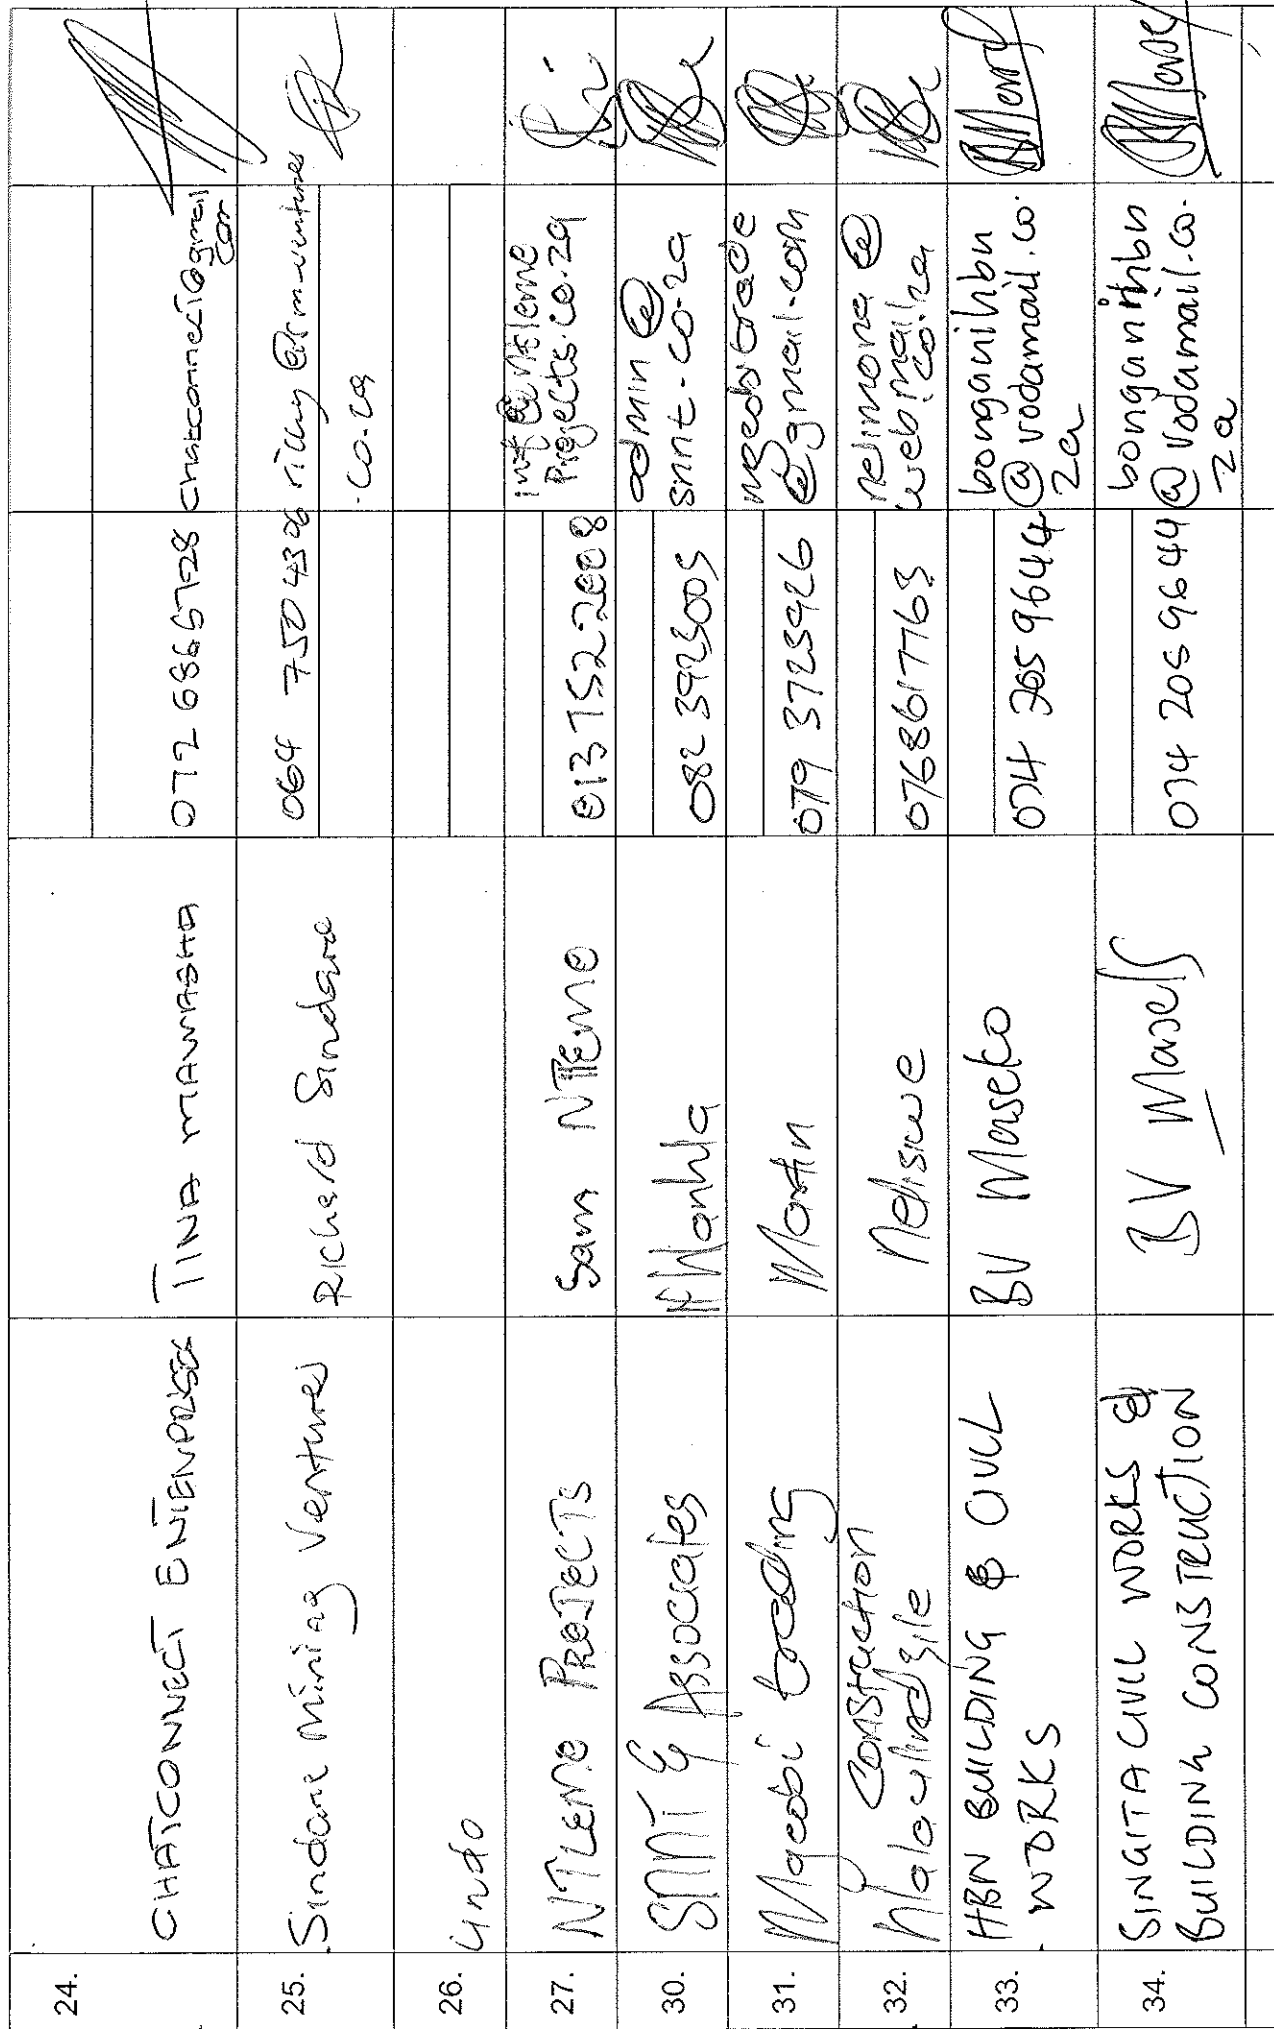 24.
CHATCONNECT ENTERPRISES
TINA MAWASHA
072 6866728
chatconnect1@gmail
com
25.
Sindane Mining Ventures
Richard Sindane
064 750 4396
.co.za
26.
27.
NTLEMO PROJECTS
Sam NTLEMO
013 752 2008
Projects.co.za
30.
SMNT & Associates
Nonhla
082 3923005
admin @
smnt.co.za
31.
Mgcobi trading
Martin
079 3725926
@gmail.com
32.
Construction
Nelisiwe
0768617763
nelimona @
webmail.
co.za
33.
HBN BUILDING & CIVIL
WORKS
BV Maseko
074 205 9644
bonganihbn
@ vodamail.co.
za
34.
SINGITA CIVIL WORKS &
BUILDING CONSTRUCTION
BV Maseko
074 205 9644
bonganihbn
@ vodamail.co.
za